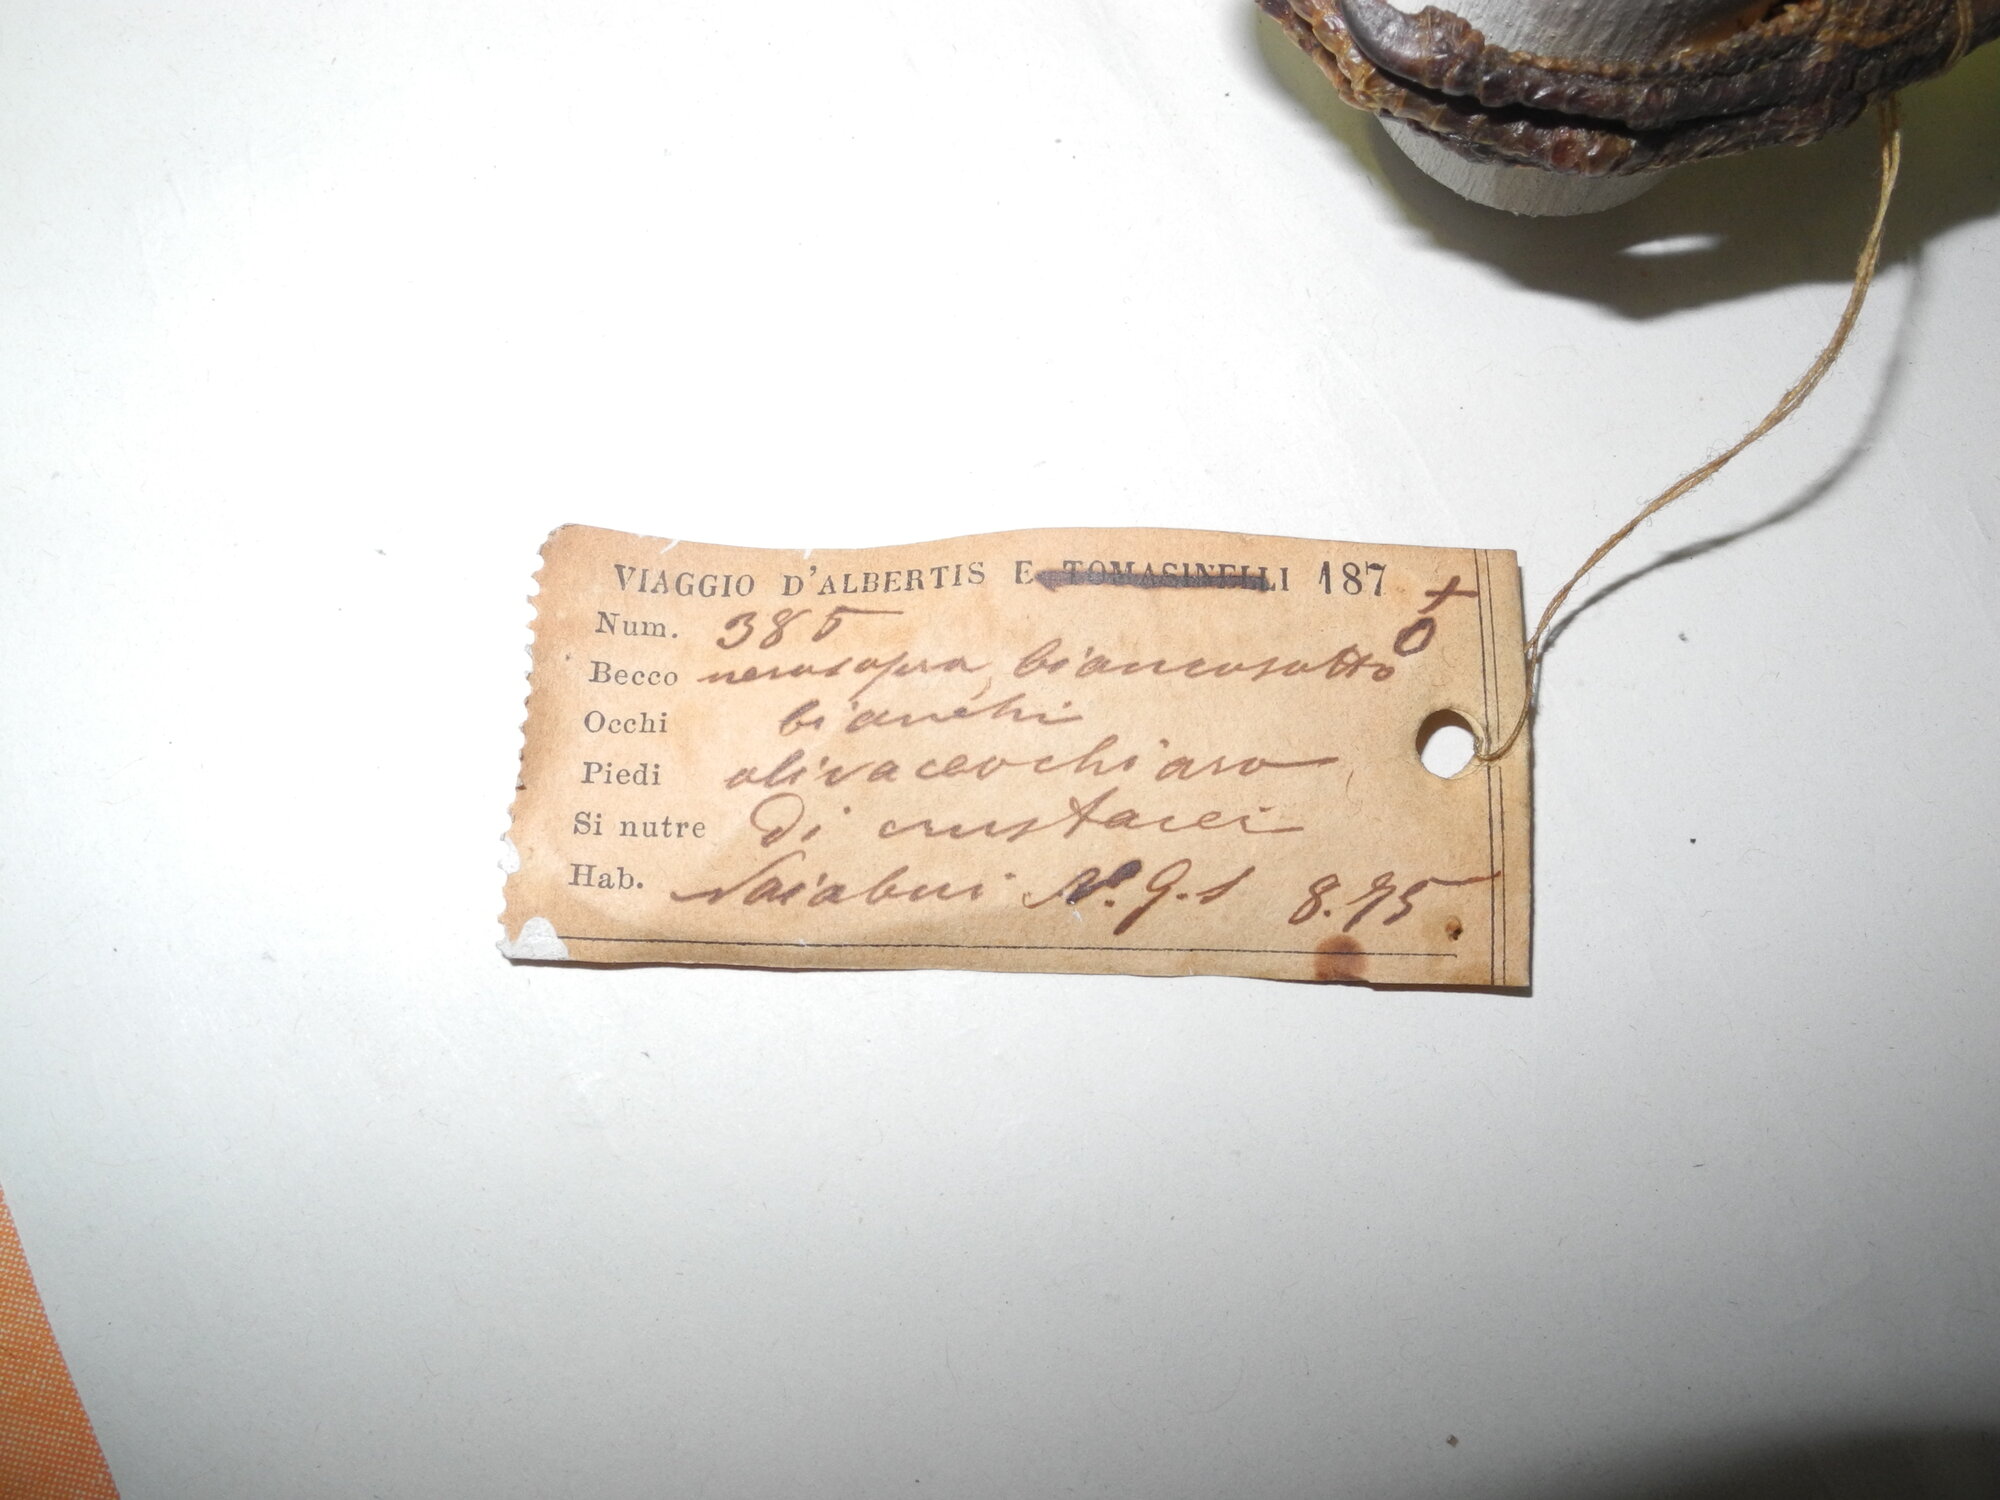 VIAGGIO D'ALBERTIS E TOMASINELLI 187
Num. 385
Becco nerosopra, biancosotto
Occhi bianchi
Piedi olivaceochiaro
Si nutre Di crustacei
Hab. Naiabui N. G. S 8.75